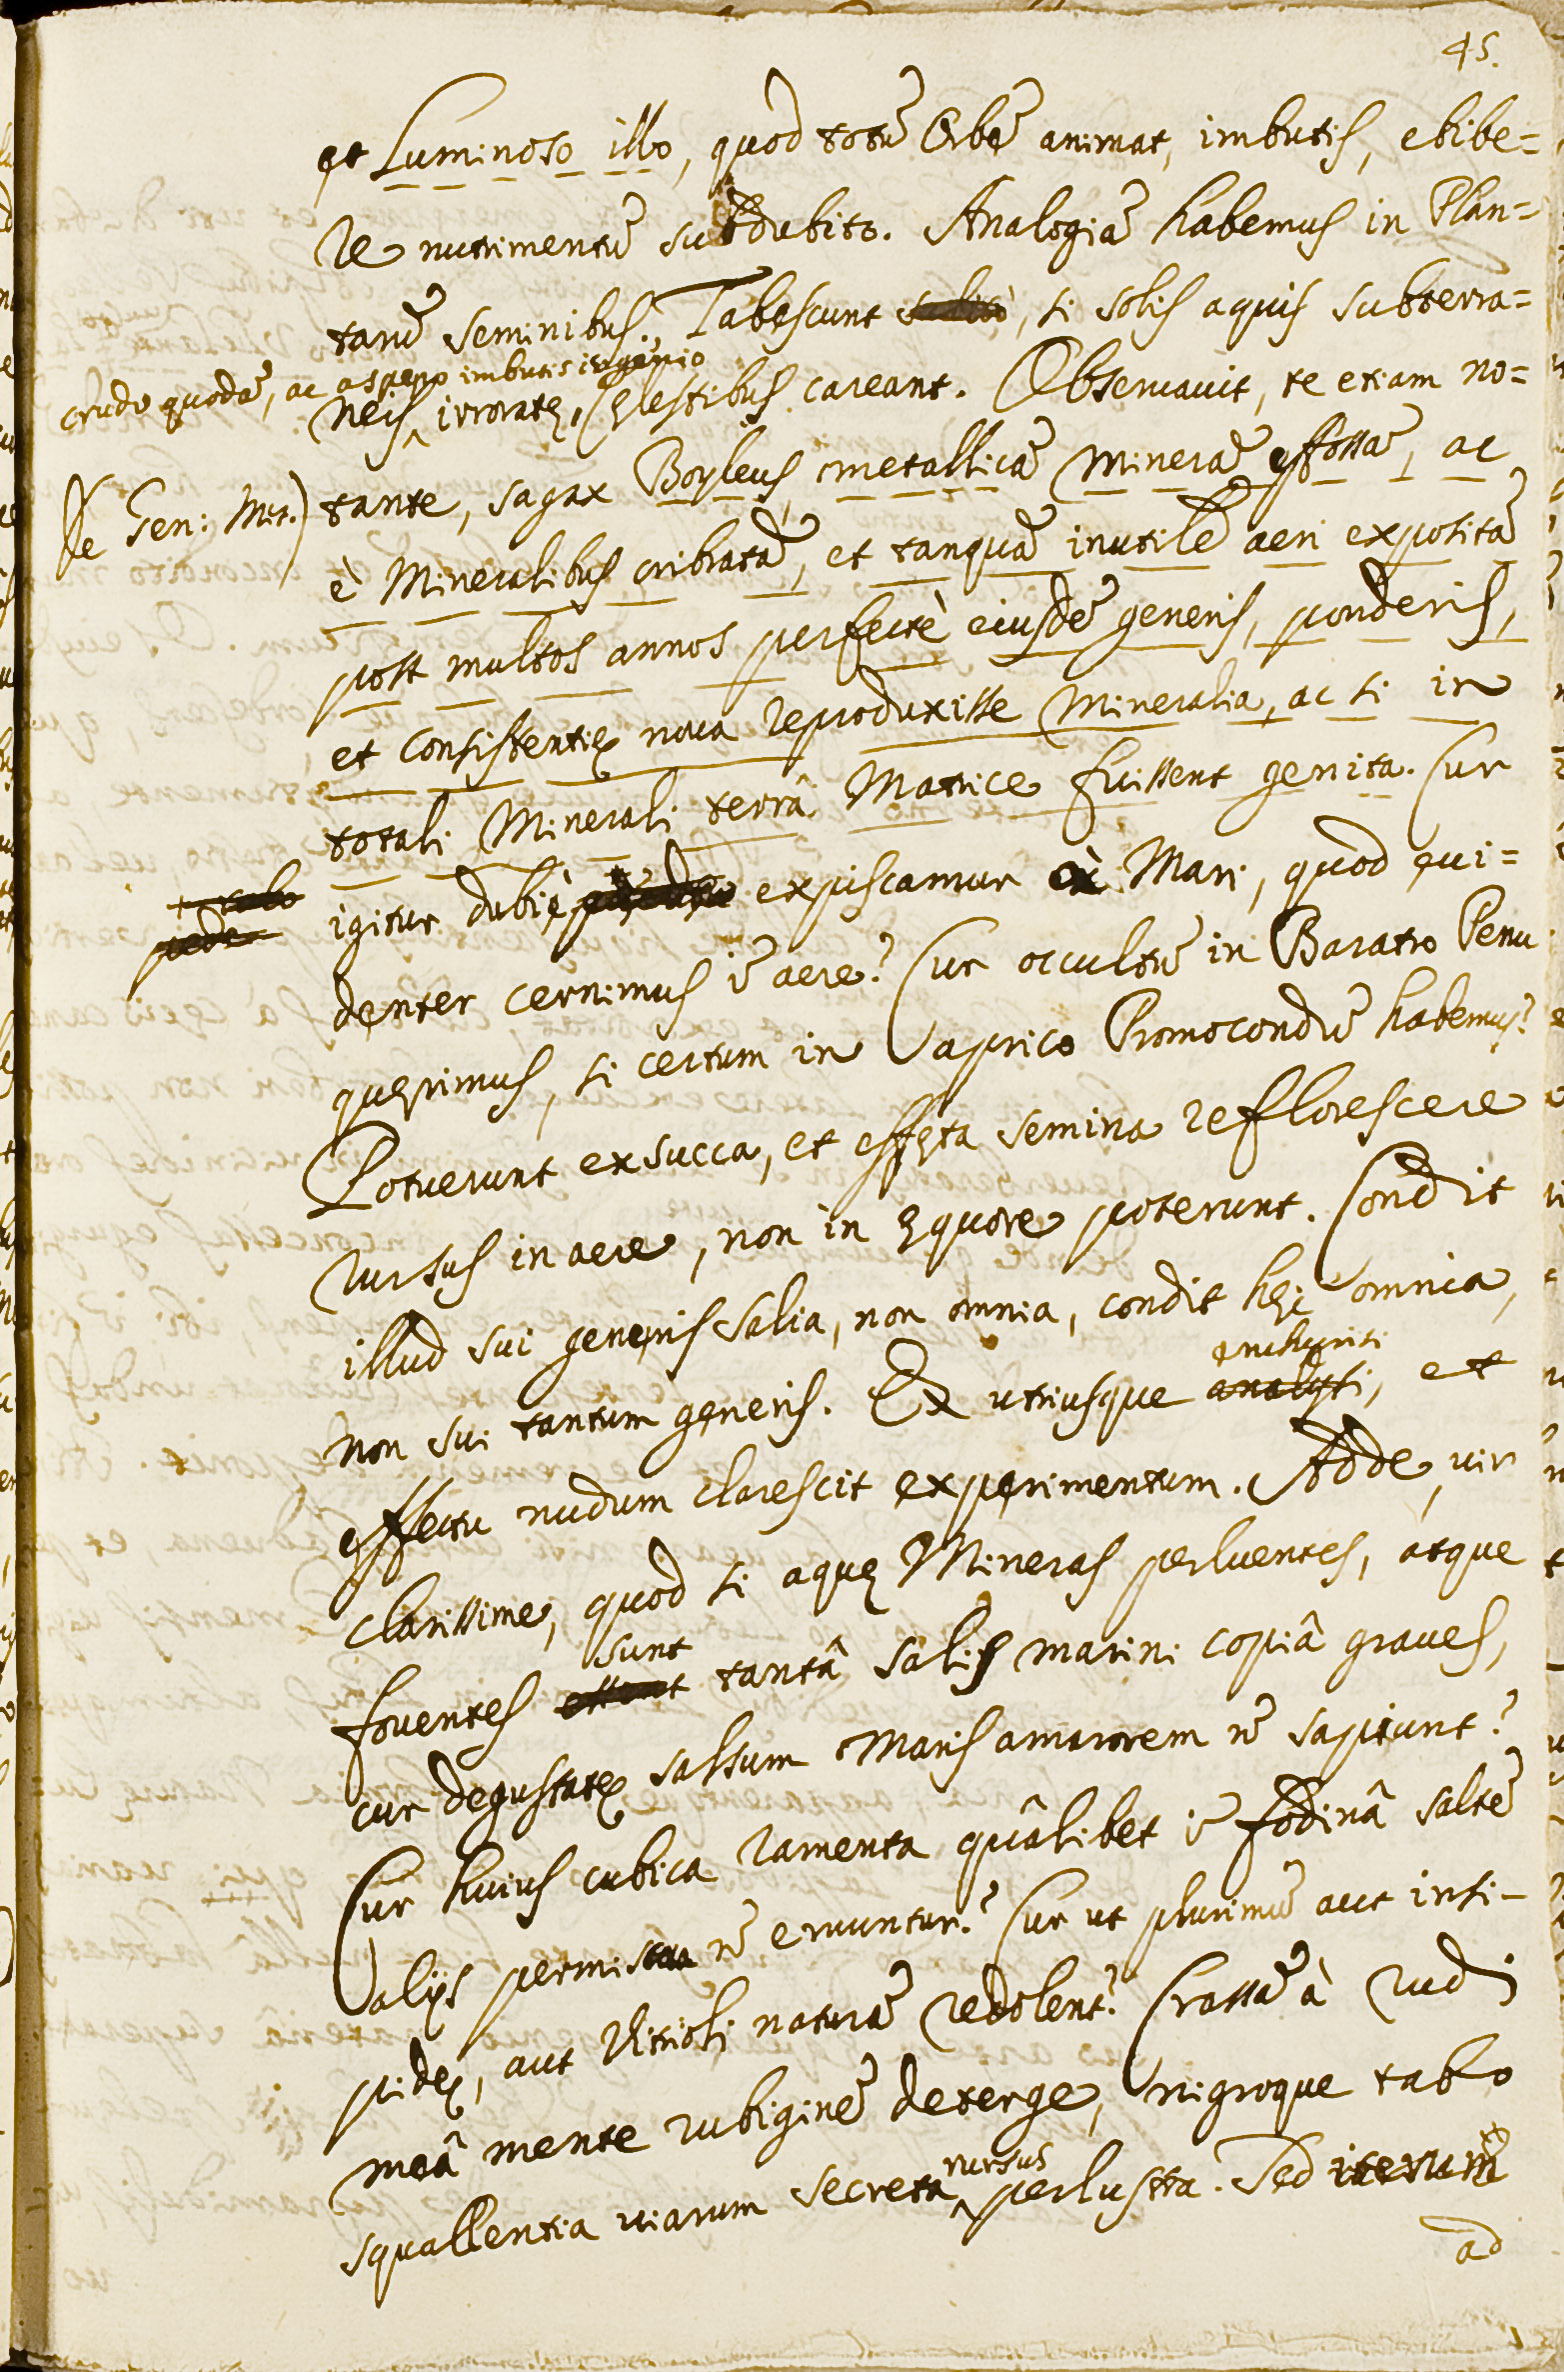 45.
et Luminoso illo, quod totũ Orbẽ animat, imbutis, ebibe=
re nutrimentũ subdubito. Analogiã habemus in Plan=
tarũ seminibus. Tabescunt, si solis aquis subterra=
crudo quodã, ac aspero imbutis ingenio
neis ^ irroratę, Cęlestibus careant. Observavit, te etiam no=
De Gen: Min.)
tante, sagax Boyleus, metallicã Minerã effossã, ac
è Mineralibus cribratã, et tanquã inutilẽ aeri expositã
post multos annos perfectè eiusdẽ generis, ponderis,
et consistentię nova reproduxisse Mineralia, ac si in
totali Minerali terrâ Matrice fuissent genita. Cur
igitur dubiè expiscamur è Mari, quod evi=
denter cernimus ĩ aere? Cur occultũ in Baratro Penu
quęrimus, si certum in aprico Promocondũ habemus?
Potuerunt exsucca, et effęta semina reflorescere
rursus in aere, non in ęquore poterunt. Condit
illud sui generis salia, non omnia, condit hęc omnia,
non sui tantum generis. Ex utriusque analysi, et
effectu nudum clarescit experimentum. Adde, vir
clarissime, quod si aquę Mineras perluentes, atque
sunt
foventes essent tantâ salis marini copiâ graves,
cur degustatę salsum Maris amarorem nõ sapiunt?
Cur huius cubica ramenta quâlibet ĩ fodinâ saltẽ
alijs permista nõ eruuntur? Cur ut plurimũ aut insi-
pidę, aut Vitrioli naturã redolent? Crassã à rudi
meâ mente rubiginẽ deterge, nigroque tabo
squallentia viarum secreta ^ rursus perlustra. Sed iterum
ad